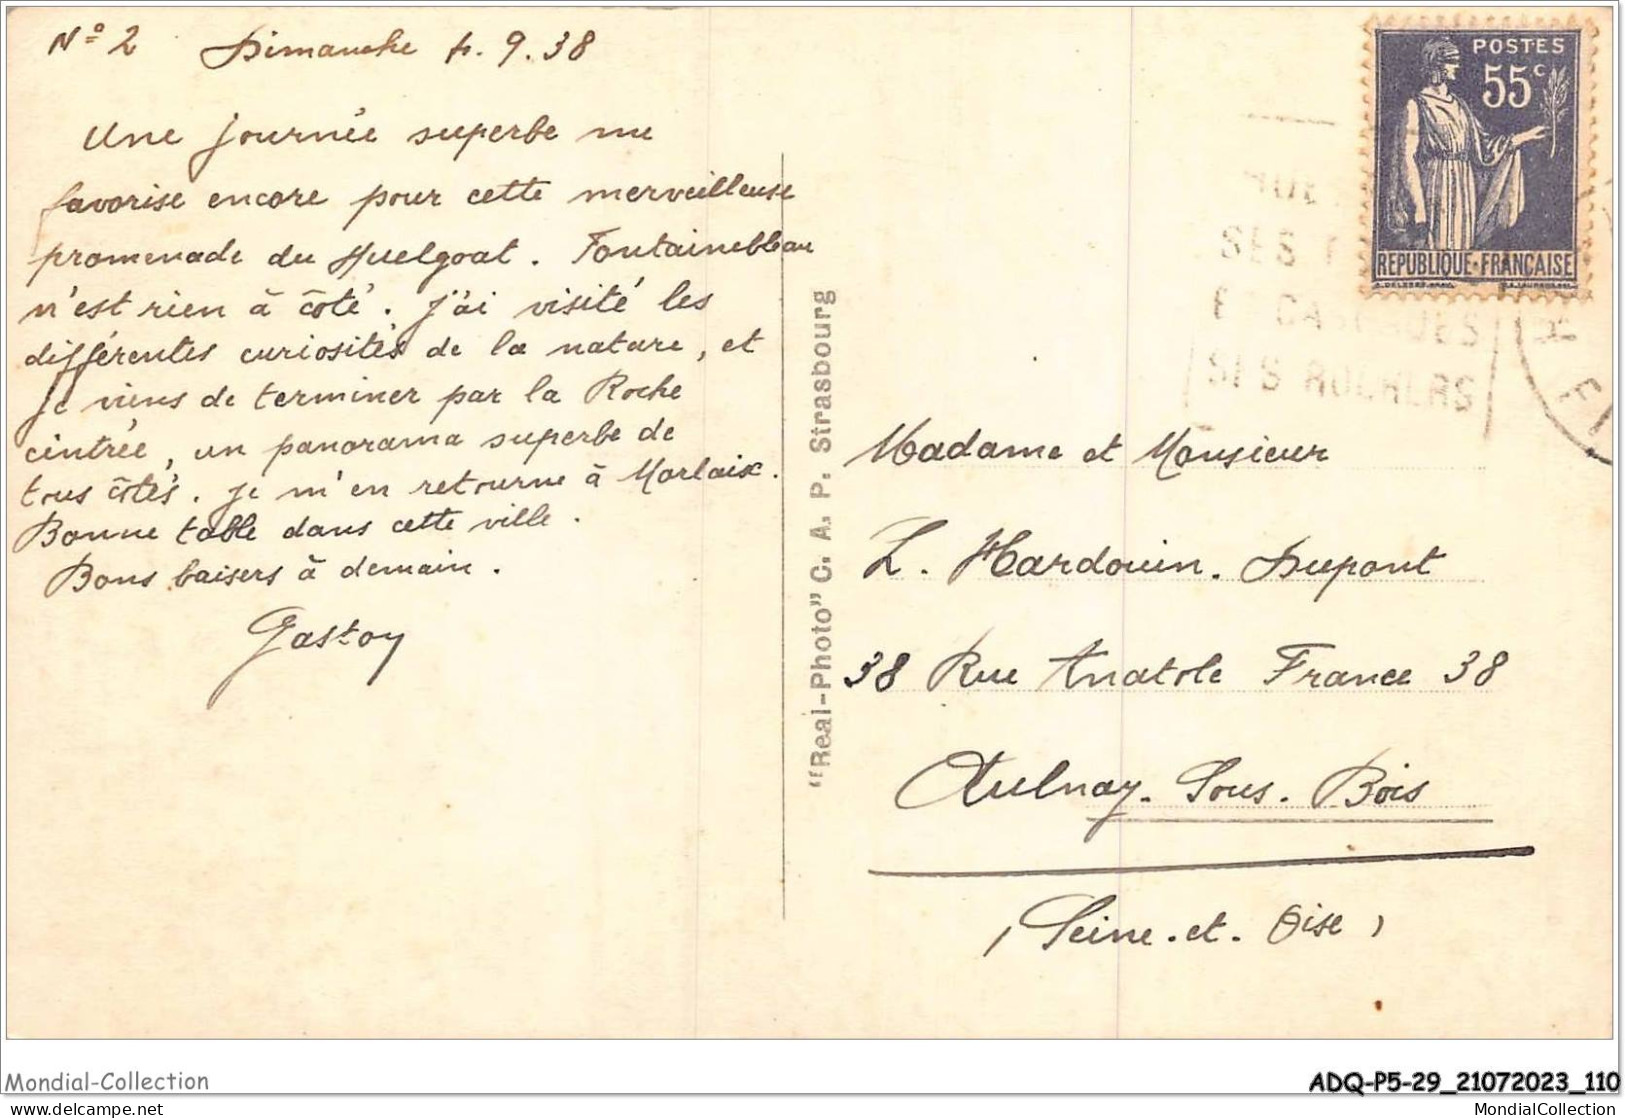 N° 2 Dimanche 4. 9. 38
Une journée superbe me
favorise encore pour cette merveilleuse
promenade du Huelgoat. Fontainebleau
n'est rien à côté. J'ai visité les
différentes curiosités de la nature, et
je viens de terminer par la Roche
cintrée, un panorama superbe de
tous côtés. Je m'en retourne à Morlaix.
Bonne table dans cette ville.
Bons baisers à demain.
Gaston
"Real-Photo" C. A. P. Strasbourg
POSTES
55c
REPUBLIQUE·FRANÇAISE
SES
CASCADES
SES ROCHERS
Madame et Monsieur
L. Hardouin. Dupont
38 Rue Anatole France 38
Aulnay. Sous. Bois
(Seine. et. Oise)
Mondial-Collection
ADQ-P5-29_21072023_110
delcampe.net
MondialCollection